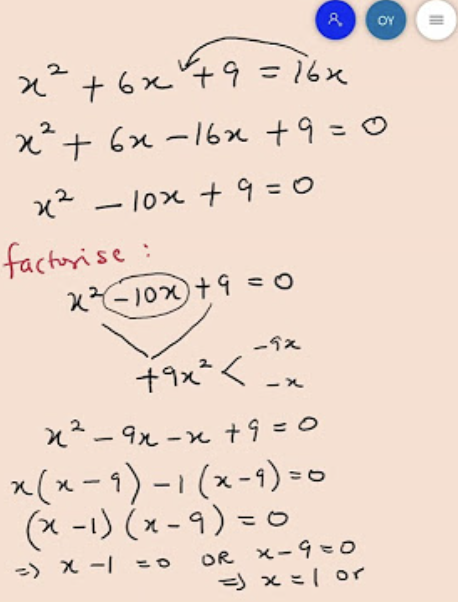 OY
x² + 6x + 9 = 16x
x² + 6x - 16x + 9 = 0
x² - 10x + 9 = 0
factorise :
x² - 10x + 9 = 0
+9x² < -9x
-x
x² - 9x - x + 9 = 0
x(x - 9) - 1(x - 9) = 0
(x - 1)(x - 9) = 0
=> x - 1 = 0 OR x - 9 = 0
=> x = 1 or